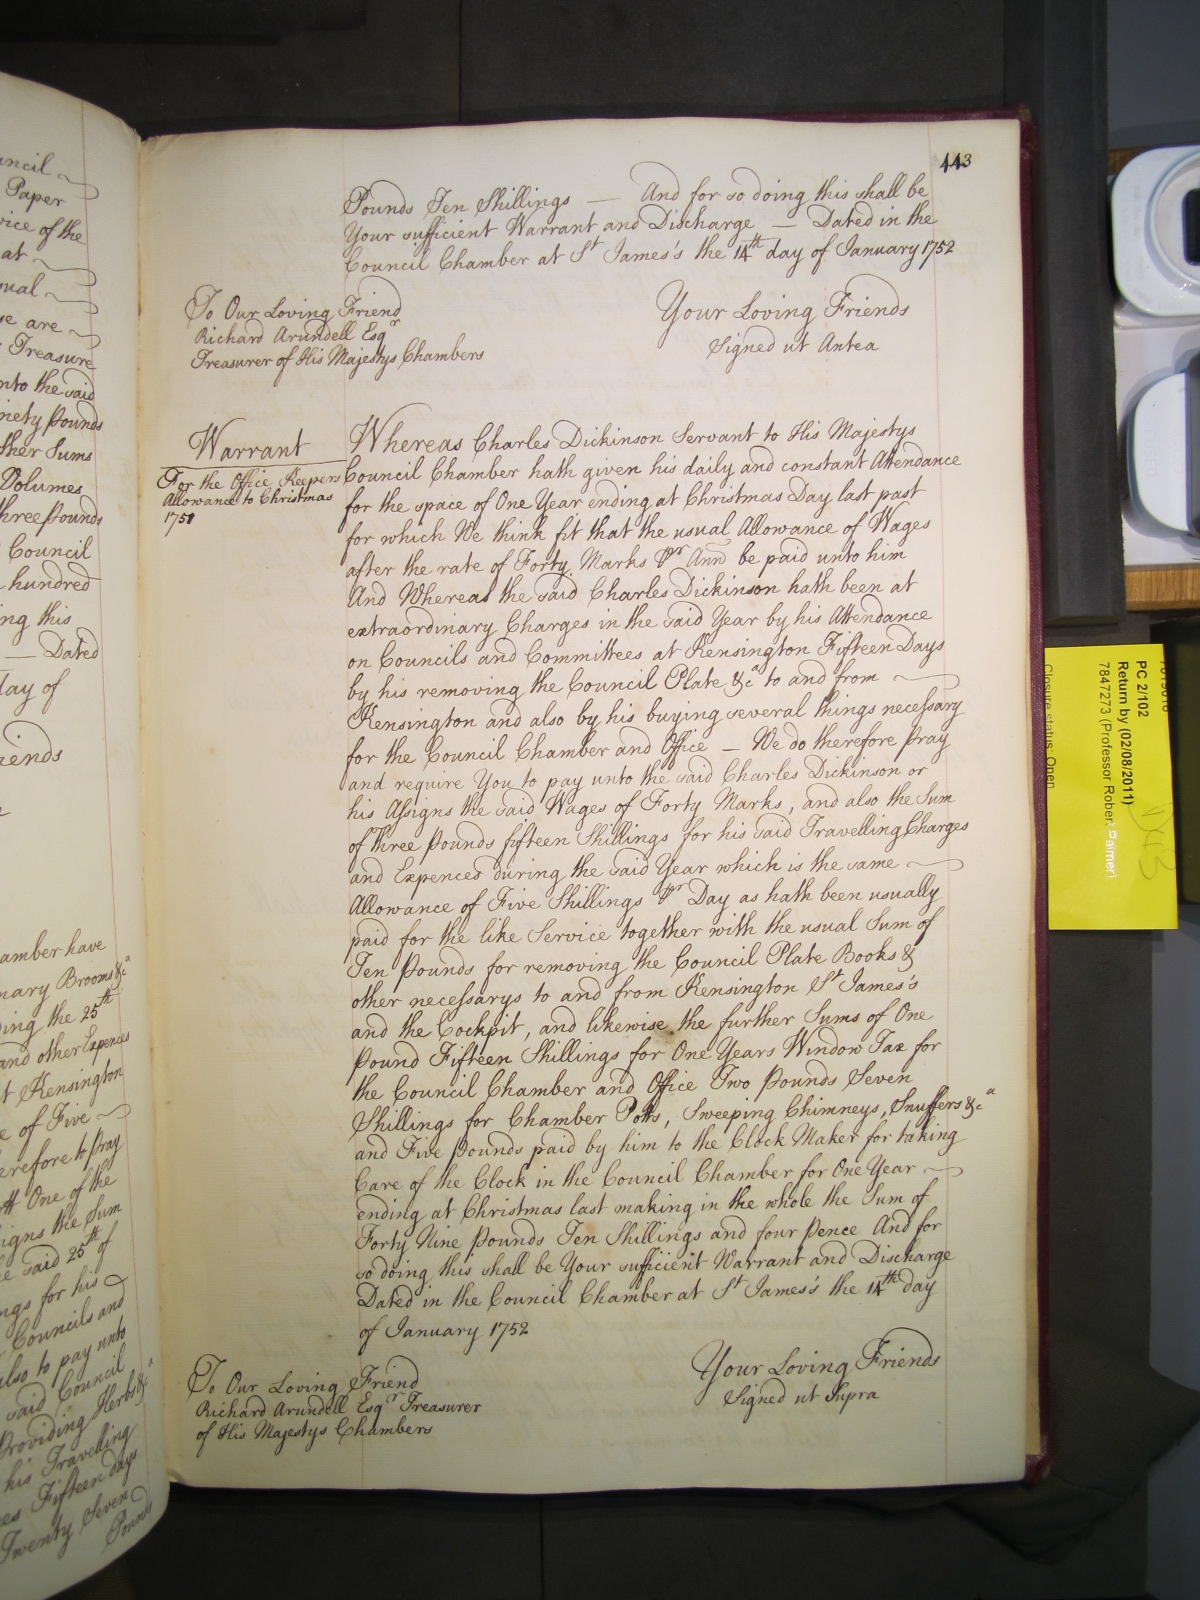 uncil
Paper
vice of the
at
nual
se are
Treasure
nto the said
nety Pounds
ther Sums
Volumes
three Pounds
Council
hundred
ing this
— Dated
day of
iends
amber have
nary Brooms &cª
ding the 25th
and other Expences
t Kensington
e of Five
erefore to pray
tt One of the
signs the Sum
e said 25th of
ngs for his
Councils and
also to pay unto
said Council
Providing Herbs &cª
his Travelling
es Fifteen days
Twenty Seven
Pounds
443
Pounds Ten Shillings — And for so doing this shall be
Your sufficient Warrant and Discharge — Dated in the
Council Chamber at St James's the 14th day of January 1752
To Our Loving Friend
Richard Arundell Esqr
Treasurer of His Majestys Chambers
Your Loving Friends
Signed ut Antea
Warrant
For the Office Keepers
Allowance to Christmas
1751
Whereas Charles Dickinson Servant to His Majestys
Council Chamber hath given his daily and constant Attendance
for the space of One Year ending at Christmas Day last past
for which We think fit that the usual Allowance of Wages
after the rate of Forty Marks pr Ann be paid unto him
And Whereas the said Charles Dickinson hath been at
extraordinary Charges in the said Year by his Attendance
on Councils and Committees at Kensington Fifteen Days
by his removing the Council Plate &cª to and from
Kensington and also by his buying several things necessary
for the Council Chamber and Office — We do therefore Pray
and require You to pay unto the said Charles Dickinson or
his Assigns the said Wages of Forty Marks, and also the Sum
of three Pounds fifteen Shillings for his said Travelling Charges
and Expences during the said Year which is the same
Allowance of Five Shillings pr Day as hath been usually
paid for the like Service together with the usual Sum of
Ten Pounds for removing the Council Plate Books &
other necessarys to and from Kensington St James's
and the Cockpit, and likewise the further Sums of One
Pound Fifteen Shillings for One Years Window Tax for
the Council Chamber and Office Two Pounds Seven
Shillings for Chamber Potts, Sweeping Chimneys, Snuffers &cª
and Five Pounds paid by him to the Clock Maker for taking
Care of the Clock in the Council Chamber for One Year
ending at Christmas last making in the whole the Sum of
Forty Nine Pounds Ten Shillings and four Pence And for
so doing this shall be Your sufficient Warrant and Discharge
Dated in the Council Chamber at St James's the 14th day
of January 1752
To Our Loving Friend
Richard Arundell Esqr Treasurer
of His Majestys Chambers
Your Loving Friends
Signed ut Supra
PC 2/102
Return by (02/08/2011)
7847273 (Professor Robert Palmer)
Closure status: Open